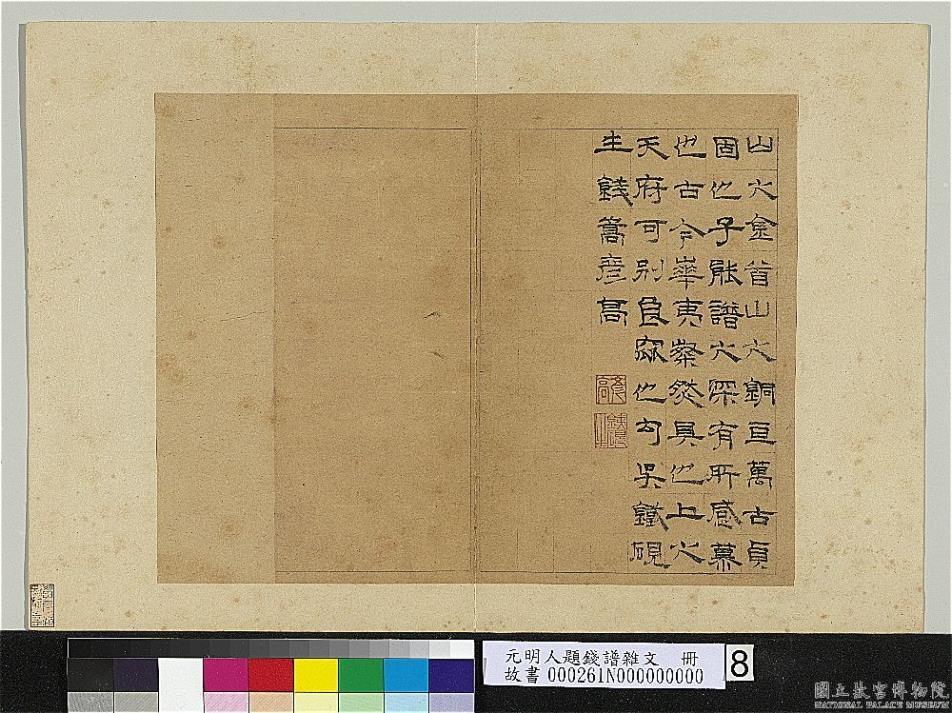 山之金首山之銅亘萬古貞
固也子能譜之深有所感慕
也古今華夷粲然具也上之
天府可別良窳也勾吳鐵硯
生錢彥高
彥高
元明人題錢譜雜文 冊
故書 000261N000000000
8
國立故宮博物院
NATIONAL PALACE MUSEUM